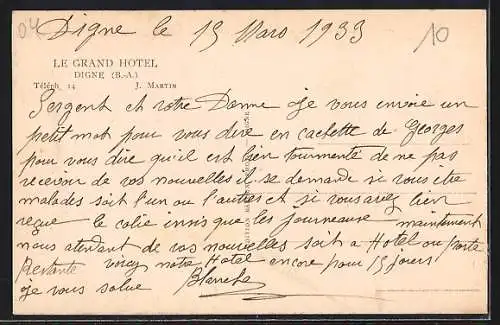 04
Digne le 15 Mars 1933
10
LE GRAND HOTEL
DIGNE (B.-A.)
Téléph. 14 J. MARTIN
Sergent et votre Dame je vous envoie un
petit mot pour vous dire en cachette de Georges
pour vous dire qu'il est bien tourmente de ne pas
recevoir de vos nouvelles il se demande si vous etre
malades soit l'un ou l'autres et si vous avez bien
reçue le colie insis que les journeause maintement
nous attendant de vos nouvelles soit a Hotel ou Poste
Restante voiez notre Hotel encore pour 15 jours
je vous salue Blanche